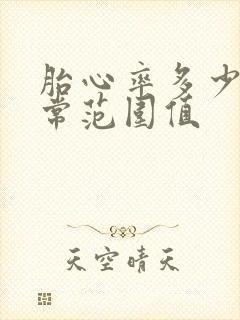 胎心率多少
常范围值
天空晴天